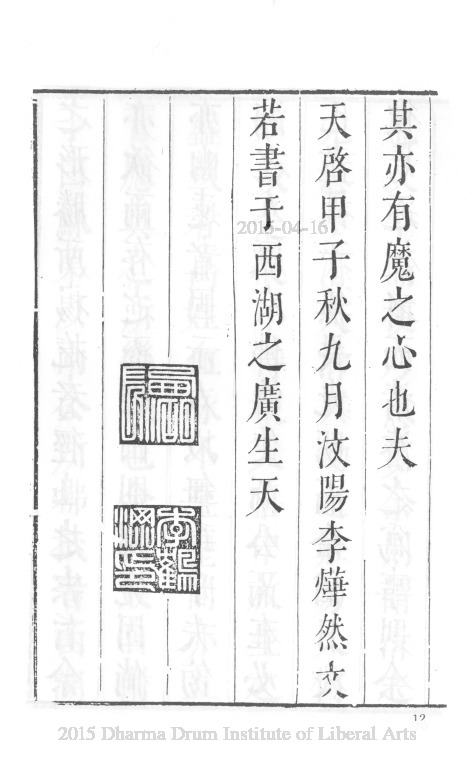 其亦有魔之心也夫
天啓甲子秋九月汶陽李燁然文
若書于西湖之廣生天
2015-04-16
12
2015 Dharma Drum Institute of Liberal Arts